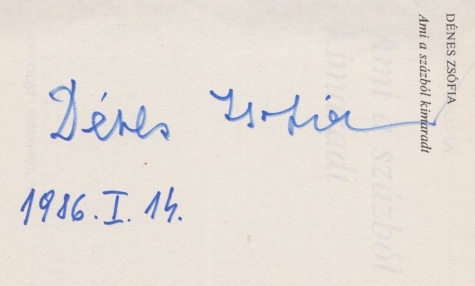 Dénes Zsófia
1986. I. 14.
DÉNES ZSÓFIA
Ami a százból kimaradt